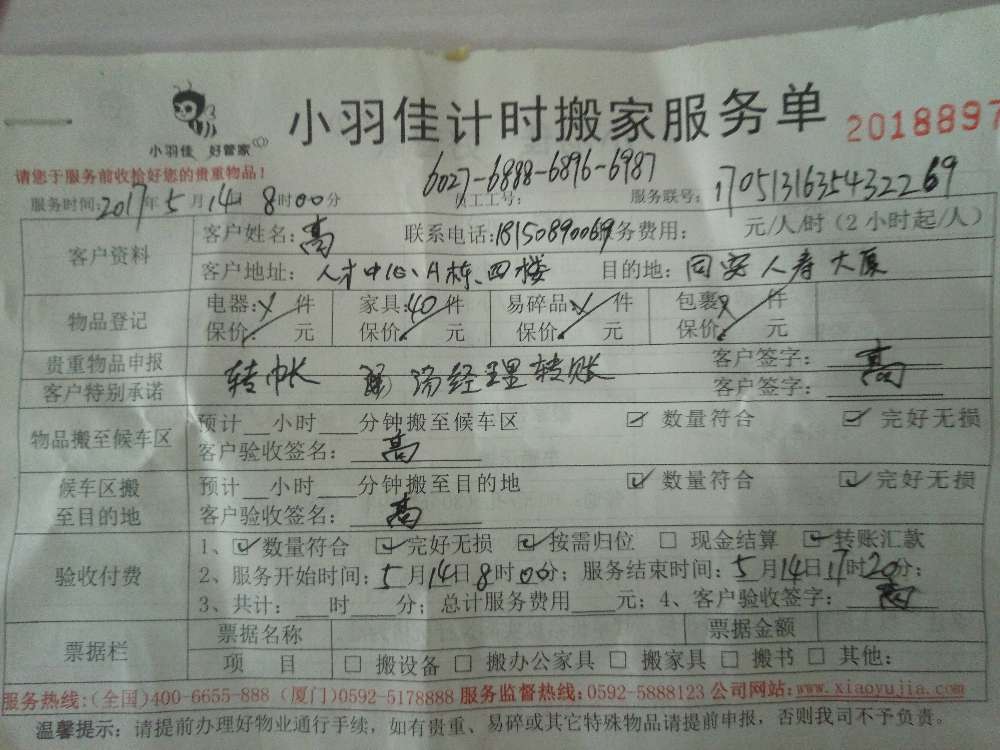 小羽佳 好管家
小羽佳计时搬家服务单
2018897
请您于服务前收捡好您的贵重物品！
6027-6888-6896-6987
服务时间:2017年5月14日8时00分 员工工号: 服务联号: 1705131635432269
客户资料 客户姓名:高 联系电话:18150890069 服务费用: 元/人/时（2小时起/人）
客户地址: 人才中心A栋、四楼 目的地: 同安人寿大厦
物品登记 电器: 件 家具:40件 易碎品: 件 包裹: 件
保价: 元 保价: 元 保价: 元 保价: 元
贵重物品申报 客户签字: 高
转帐 汤经理转账
客户特别承诺 客户签字:
物品搬至候车区 预计__小时___分钟搬至候车区 ☑ 数量符合 ☑ 完好无损
客户验收签名: 高
候车区搬至目的地 预计__小时___分钟搬至目的地 ☑ 数量符合 ☑ 完好无损
客户验收签名: 高
验收付费 1、☑数量符合 ☑完好无损 ☑按需归位 □ 现金结算 ☑转账汇款
2、服务开始时间: 5月14日8时00分; 服务结束时间: 5月14日17时20分;
3、共计:___时___分; 总计服务费用___元; 4、客户验收签字: 高
票据栏 票据名称 票据金额
项 目 □ 搬设备 □ 搬办公家具 □ 搬家具 □ 搬书 □ 其他:
服务热线:(全国)400-6655-888 (厦门)0592-5178888 服务监督热线:0592-5888123 公司网站:www.xiaoyujia.com
温馨提示: 请提前办理好物业通行手续，如有贵重、易碎或其它特殊物品请提前申报，否则我司不予负责。